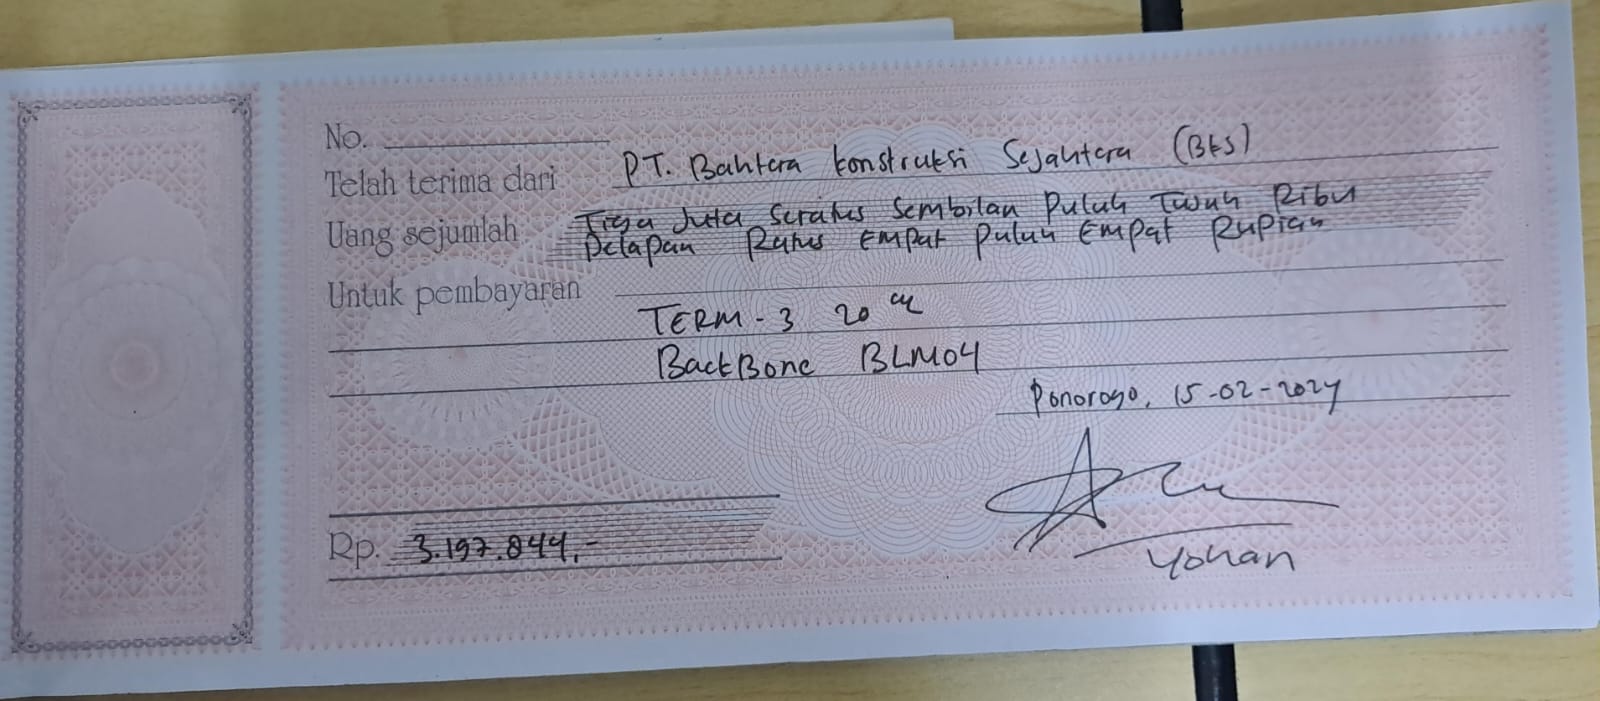 No.
Telah terima dari PT. Bahtera Konstruksi Sejahtera (BKS)
Uang sejumlah Tiga Juta Seratus Sembilan Puluh Tujuh Ribu
Delapan Ratus Empat Puluh Empat Rupiah
Untuk pembayaran
TERM - 3 20
BackBone BLM04
Ponorogo, 15-02-2024
Rp. 3.197.844,-
Yohan